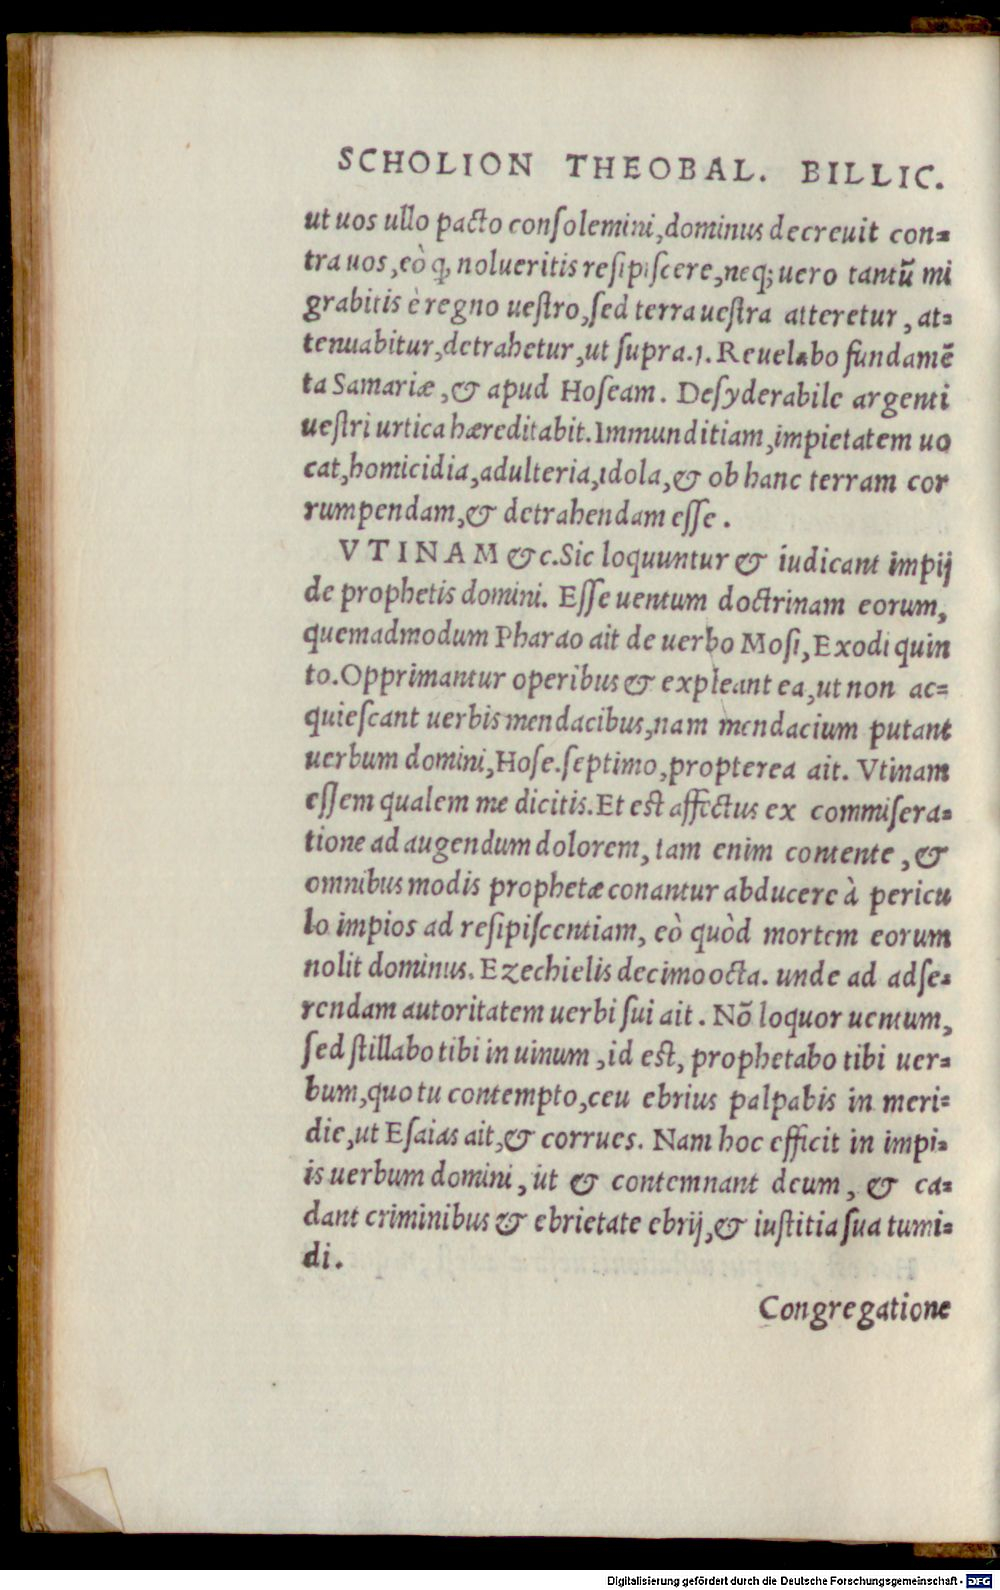 SCHOLION THEOBAL. BILLIC.
ut uos ullo pacto conſolemini, dominus decreuit con=
tra uos, eò q̃, nolueritis reſipiſcere, neq; uero tantũ mi
grabitis è regno ueſtro, ſed terra ueſtra atteretur, at=
tenuabitur, detrahetur, ut ſupra. 1. Reuelabo fundamẽ
ta Samariæ, & apud Hoſeam. Deſyderabile argenti
ueſtri urtica hæreditabit. Immunditiam, impietatem uo
cat, homicidia, adulteria, idola, & ob hanc terram cor
rumpendam, & detrahendam eſſe.
VTINAM &c. Sic loquuntur & iudicant impij
de prophetis domini. Eſſe uentum doctrinam eorum,
quemadmodum Pharao ait de uerbo Moſi, Exodi quin
to. Opprimantur operibus & expleant ea, ut non ac=
quieſcant uerbis mendacibus, nam mendacium putant
uerbum domini, Hoſe. ſeptimo, propterea ait. Vtinam
eſſem qualem me dicitis. Et eſt affectus ex commiſera=
tione ad augendum dolorem, tam enim contente, &
omnibus modis prophetæ conantur abducere à pericu
lo impios ad reſipiſcentiam, eò quòd mortem eorum
nolit dominus. Ezechielis decimo octa. unde ad adſe=
rendam autoritatem uerbi ſui ait. Nõ loquor uentum,
ſed ſtillabo tibi in uinum, id eſt, prophetabo tibi uer=
bum, quo tu contempto, ceu ebrius palpabis in meri=
die, ut Eſaias ait, & corrues. Nam hoc efficit in impi=
is uerbum domini, ut & contemnant deum, & ca=
dant criminibus & ebrietate ebrij, & iuſtitia ſua tumi=
di.
Congregatione
Digitalisierung gefördert durch die Deutsche Forschungsgemeinschaft - DFG